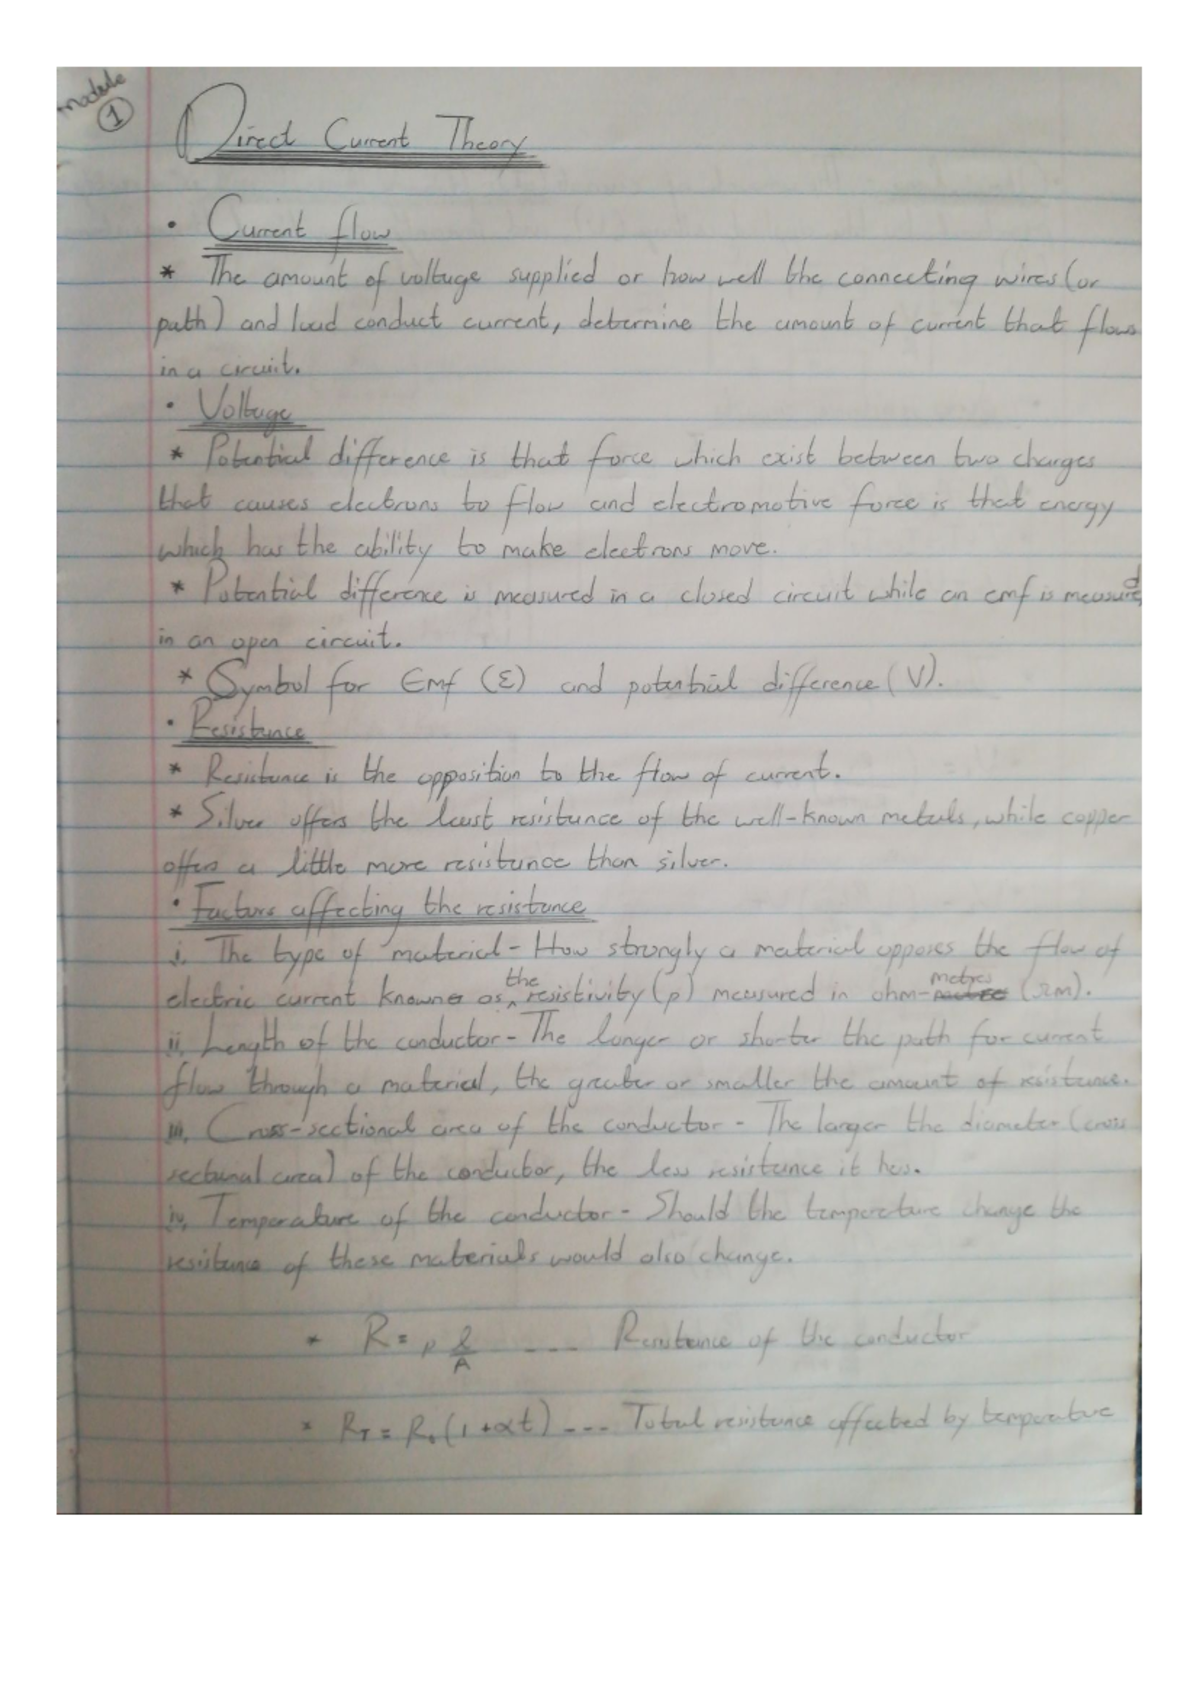 Module
1
Direct Current Theory
• Current flow
* The amount of voltage supplied or how well the connecting wires (or
path) and load conduct current, determine the amount of current that flows
in a circuit.
• Voltage
* Potential difference is that force which exist between two charges
that causes electrons to flow and electromotive force is that energy
which has the ability to make electrons move.
* Potential difference is measured in a closed circuit while an emf is measured
in an open circuit.
* Symbol for Emf (Ɛ) and potential difference (V).
• Resistance
* Resistance is the opposition to the flow of current.
* Silver offers the least resistance of the well-known metals, while copper
offers a little more resistance than silver.
• Factors affecting the resistance
i. The type of material - How strongly a material opposes the flow of
electric current knowne as the resistivity (ρ) measured in ohm-metres (Ωm).
ii. Length of the conductor - The longer or shorter the path for current
flow through a material, the greater or smaller the amount of resistance.
iii. Cross-sectional area of the conductor - The larger the diameter (cross
sectional area) of the conductor, the less resistance it has.
iv. Temperature of the conductor - Should the temperature change the
resistance of these materials would also change.
* R = ρ ℓ/A .... Resistance of the conductor
* R_T = R₀(1 + αt) .... Total resistance affected by temperature